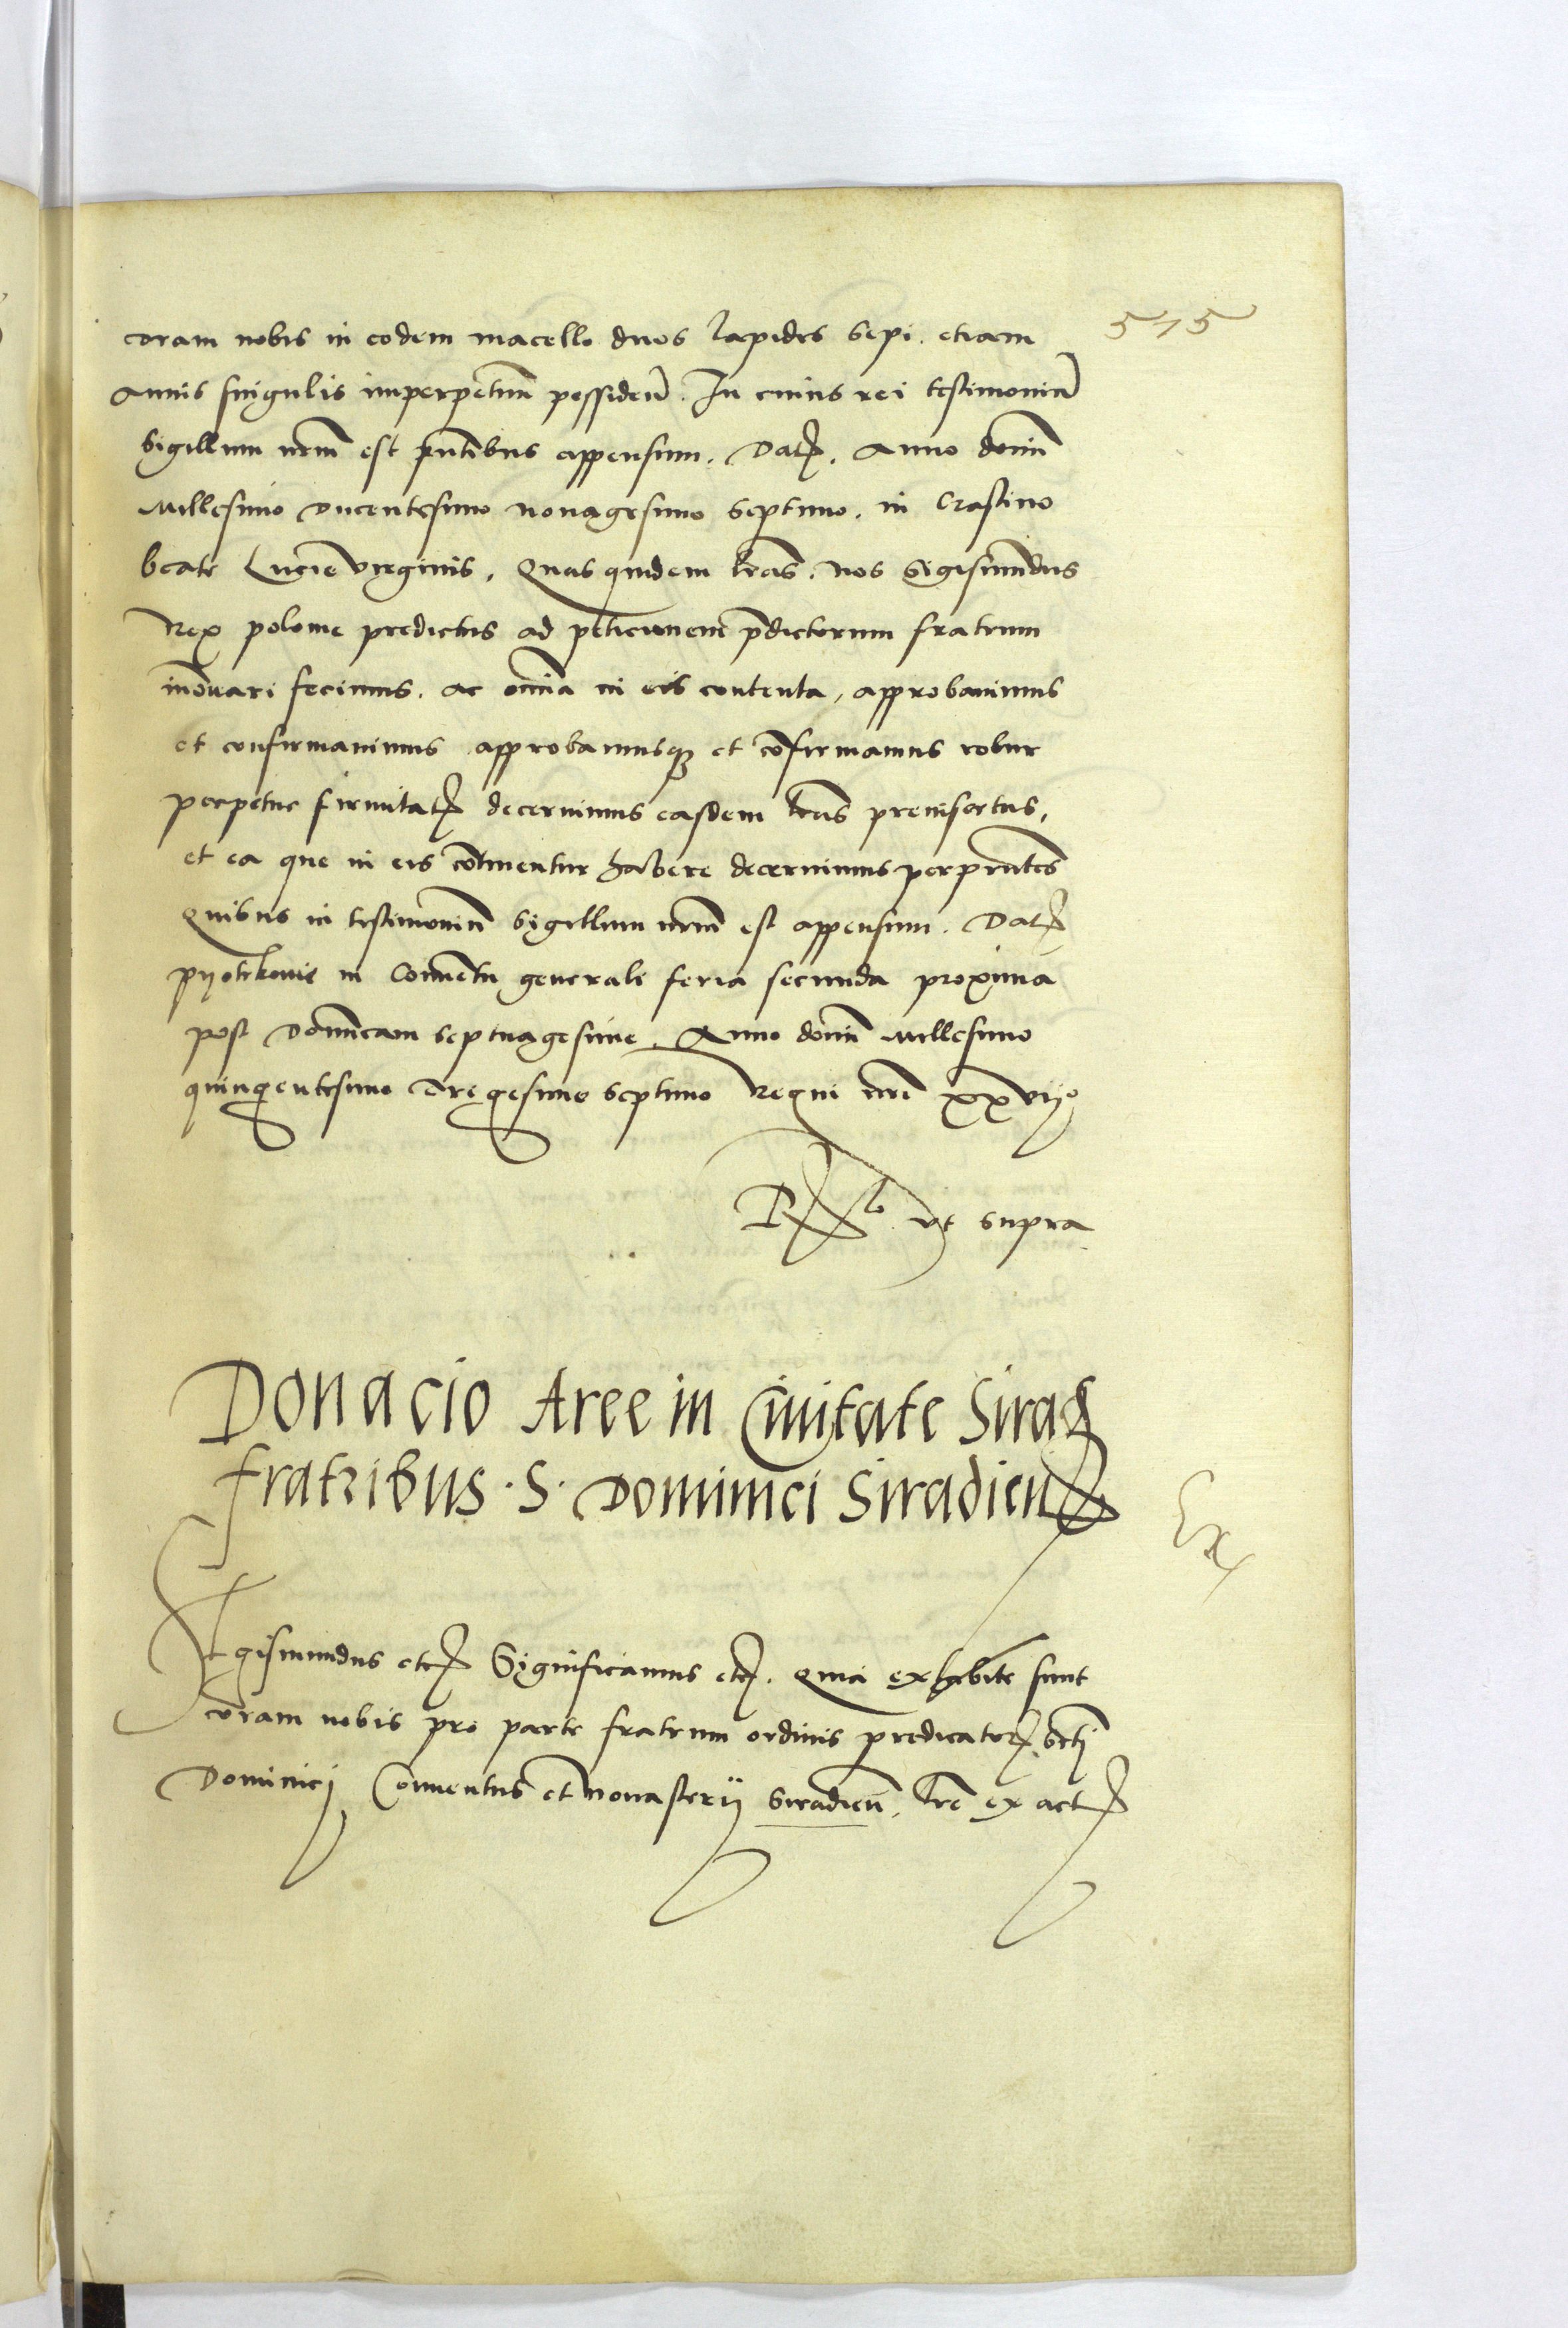 515
coram nobis in eodem macello duos lapides sepi. etiam
Annis singulis imperpetuū possidenꝰ. In cuius rei testimoniū
Sigillum nr̄m est pn̄tibus appensum. Datꝭ. Anno domī
Millesimo Ducentesimo nonagesimo septimo. in Crastino
beate Lucie virginis. Quas quidem lr̄as. nos Sigismūdus
Rex polonie predictus ad peticionem p̄dictorum fratrum
inōuari fecimus. ac om̄ia in eis contenta, approbauimus
et confirmauimus approbamusqꝫ et cōfirmamus robur
perpetue firmitatꝭ decernimus easdem lr̄as preinsertas,
et ea que in eis cōtinentur habere decernimus per pn̄tes
Quibus in testimoniū Sigillum nr̄m est appensum. Datꝭ
pyotrkouie in Conuentu generali feria secunda proxima
post Domīcam septuagesime. Anno domī Millesimo
quingentesimo Tregesimo septimo Regni nr̄i xxvijº
Rlo vt supra
Donacio Aree in Ciuitate Sirad
fratribus. S. Dominici Siradien
Ex
Sigismundus etcꝭ Significamus etcꝭ. Quia exhibite sunt
coram nobis pro parte fratrum ordinis predicatorꝝ. sctj
Dominicj Conuentus et monasterij Siradieñ. lr̄e ex actꝭ